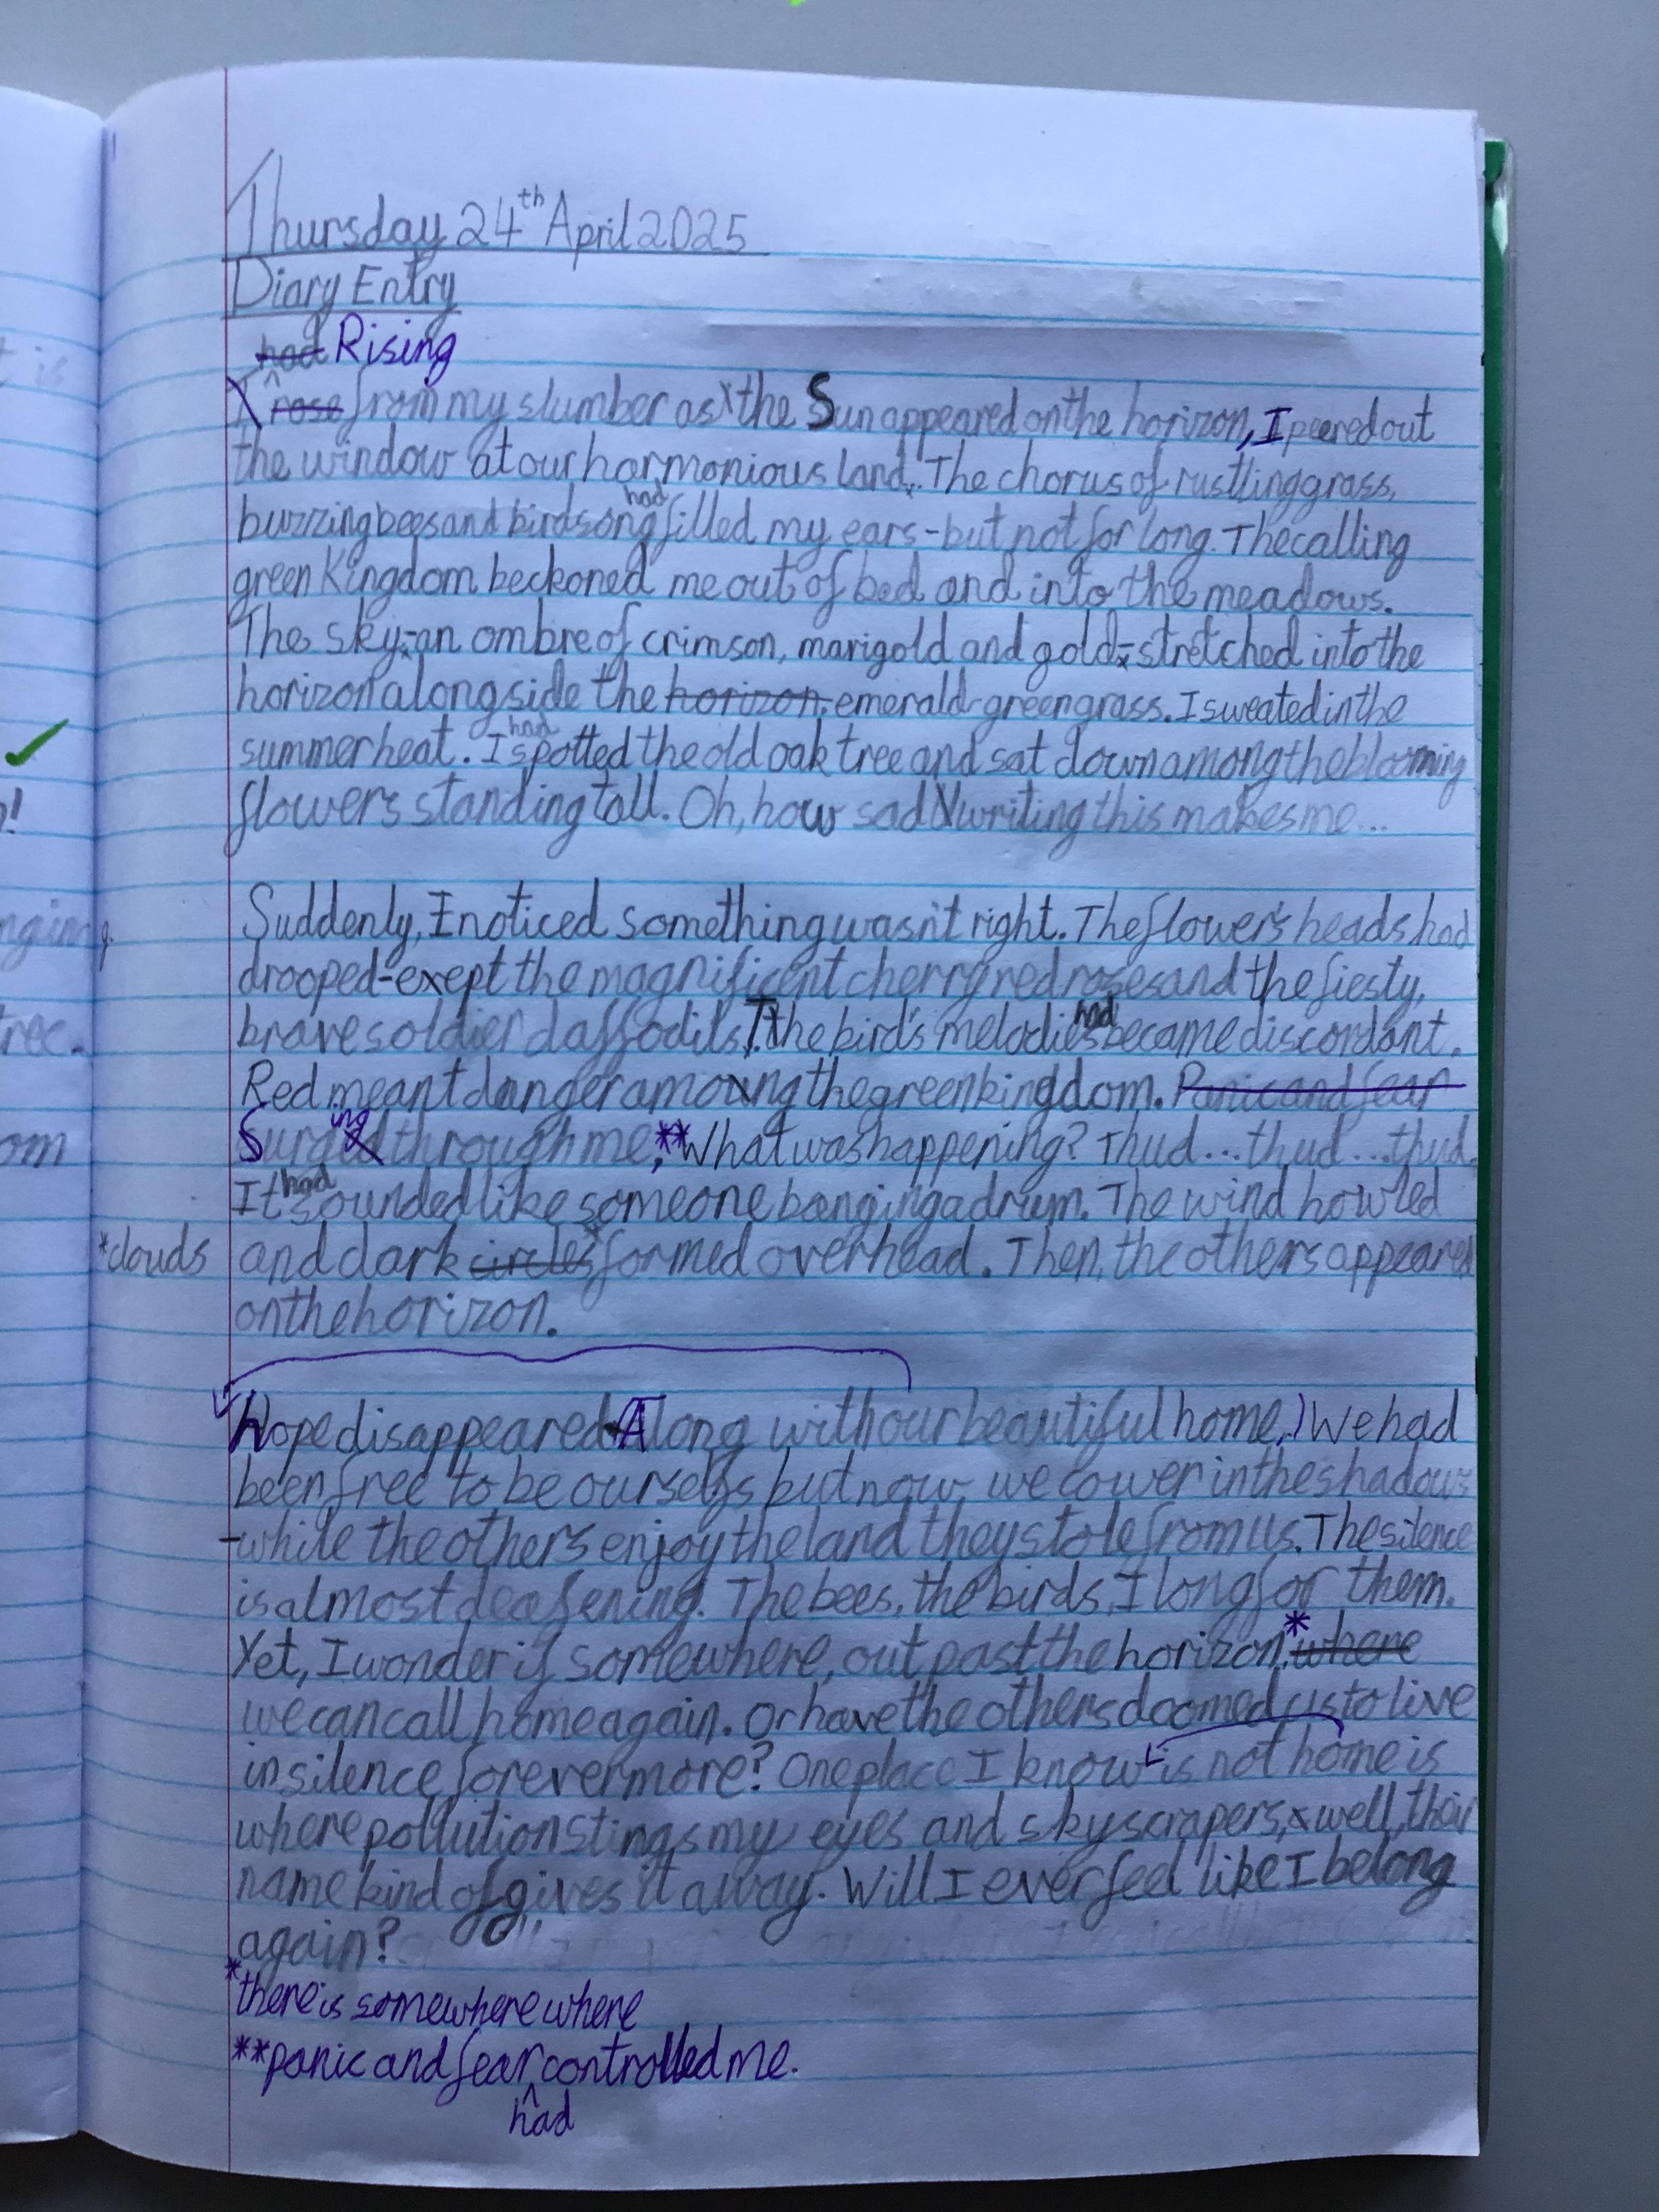 Thursday 24th April 2025
Diary Entry
had Rising
I rose from my slumber as the Sun appeared on the horizon, I peered out
the window at our harmonious land. The chorus of rustling grass,
buzzing bees and birdsong had filled my ears - but not for long. The calling
green Kingdom beckoned me out of bed and into the meadows.
The sky - an ombre of crimson, marigold and gold - stretched into the
horizon alongside the horizon. emerald-green grass. I sweated in the
summer heat. I had spotted the old oak tree and sat down among the blooming
flowers standing tall. Oh, how sad writing this makes me...
Suddenly, I noticed something wasn't right. The flower's heads had
drooped - exept the magnificent cherry red roses and the fiesty,
brave soldier daffodils. The bird's melodies had became discordant.
Red meant danger among the green kingdom. Panic and fear
Surging through me, **What was happening? Thud...thud...thud.
It had sounded like someone banging a drum. The wind howled
*clouds and dark circles* formed overhead. Then, the others appeared
on the horizon.
Hope disappeared Along with our beautiful home,) We had
been free to be ourselfs but now we cower in the shadows
-while the others enjoy the land they stole from us. The silence
is almost deafening. The bees, the birds, I long for them.
Yet, I wonder if somewhere, out past the horizon,* where
we can call home again. Or have the others doomed us to live
in silence forevermore? One place I know is not home is
where pollution stings my eyes and skyscrapers, well, their
name kind of gives it away. Will I ever feel like I belong
again?
*there is somewhere where
**panic and fear controlled me.
had
t is
!
nging.
tree.
om